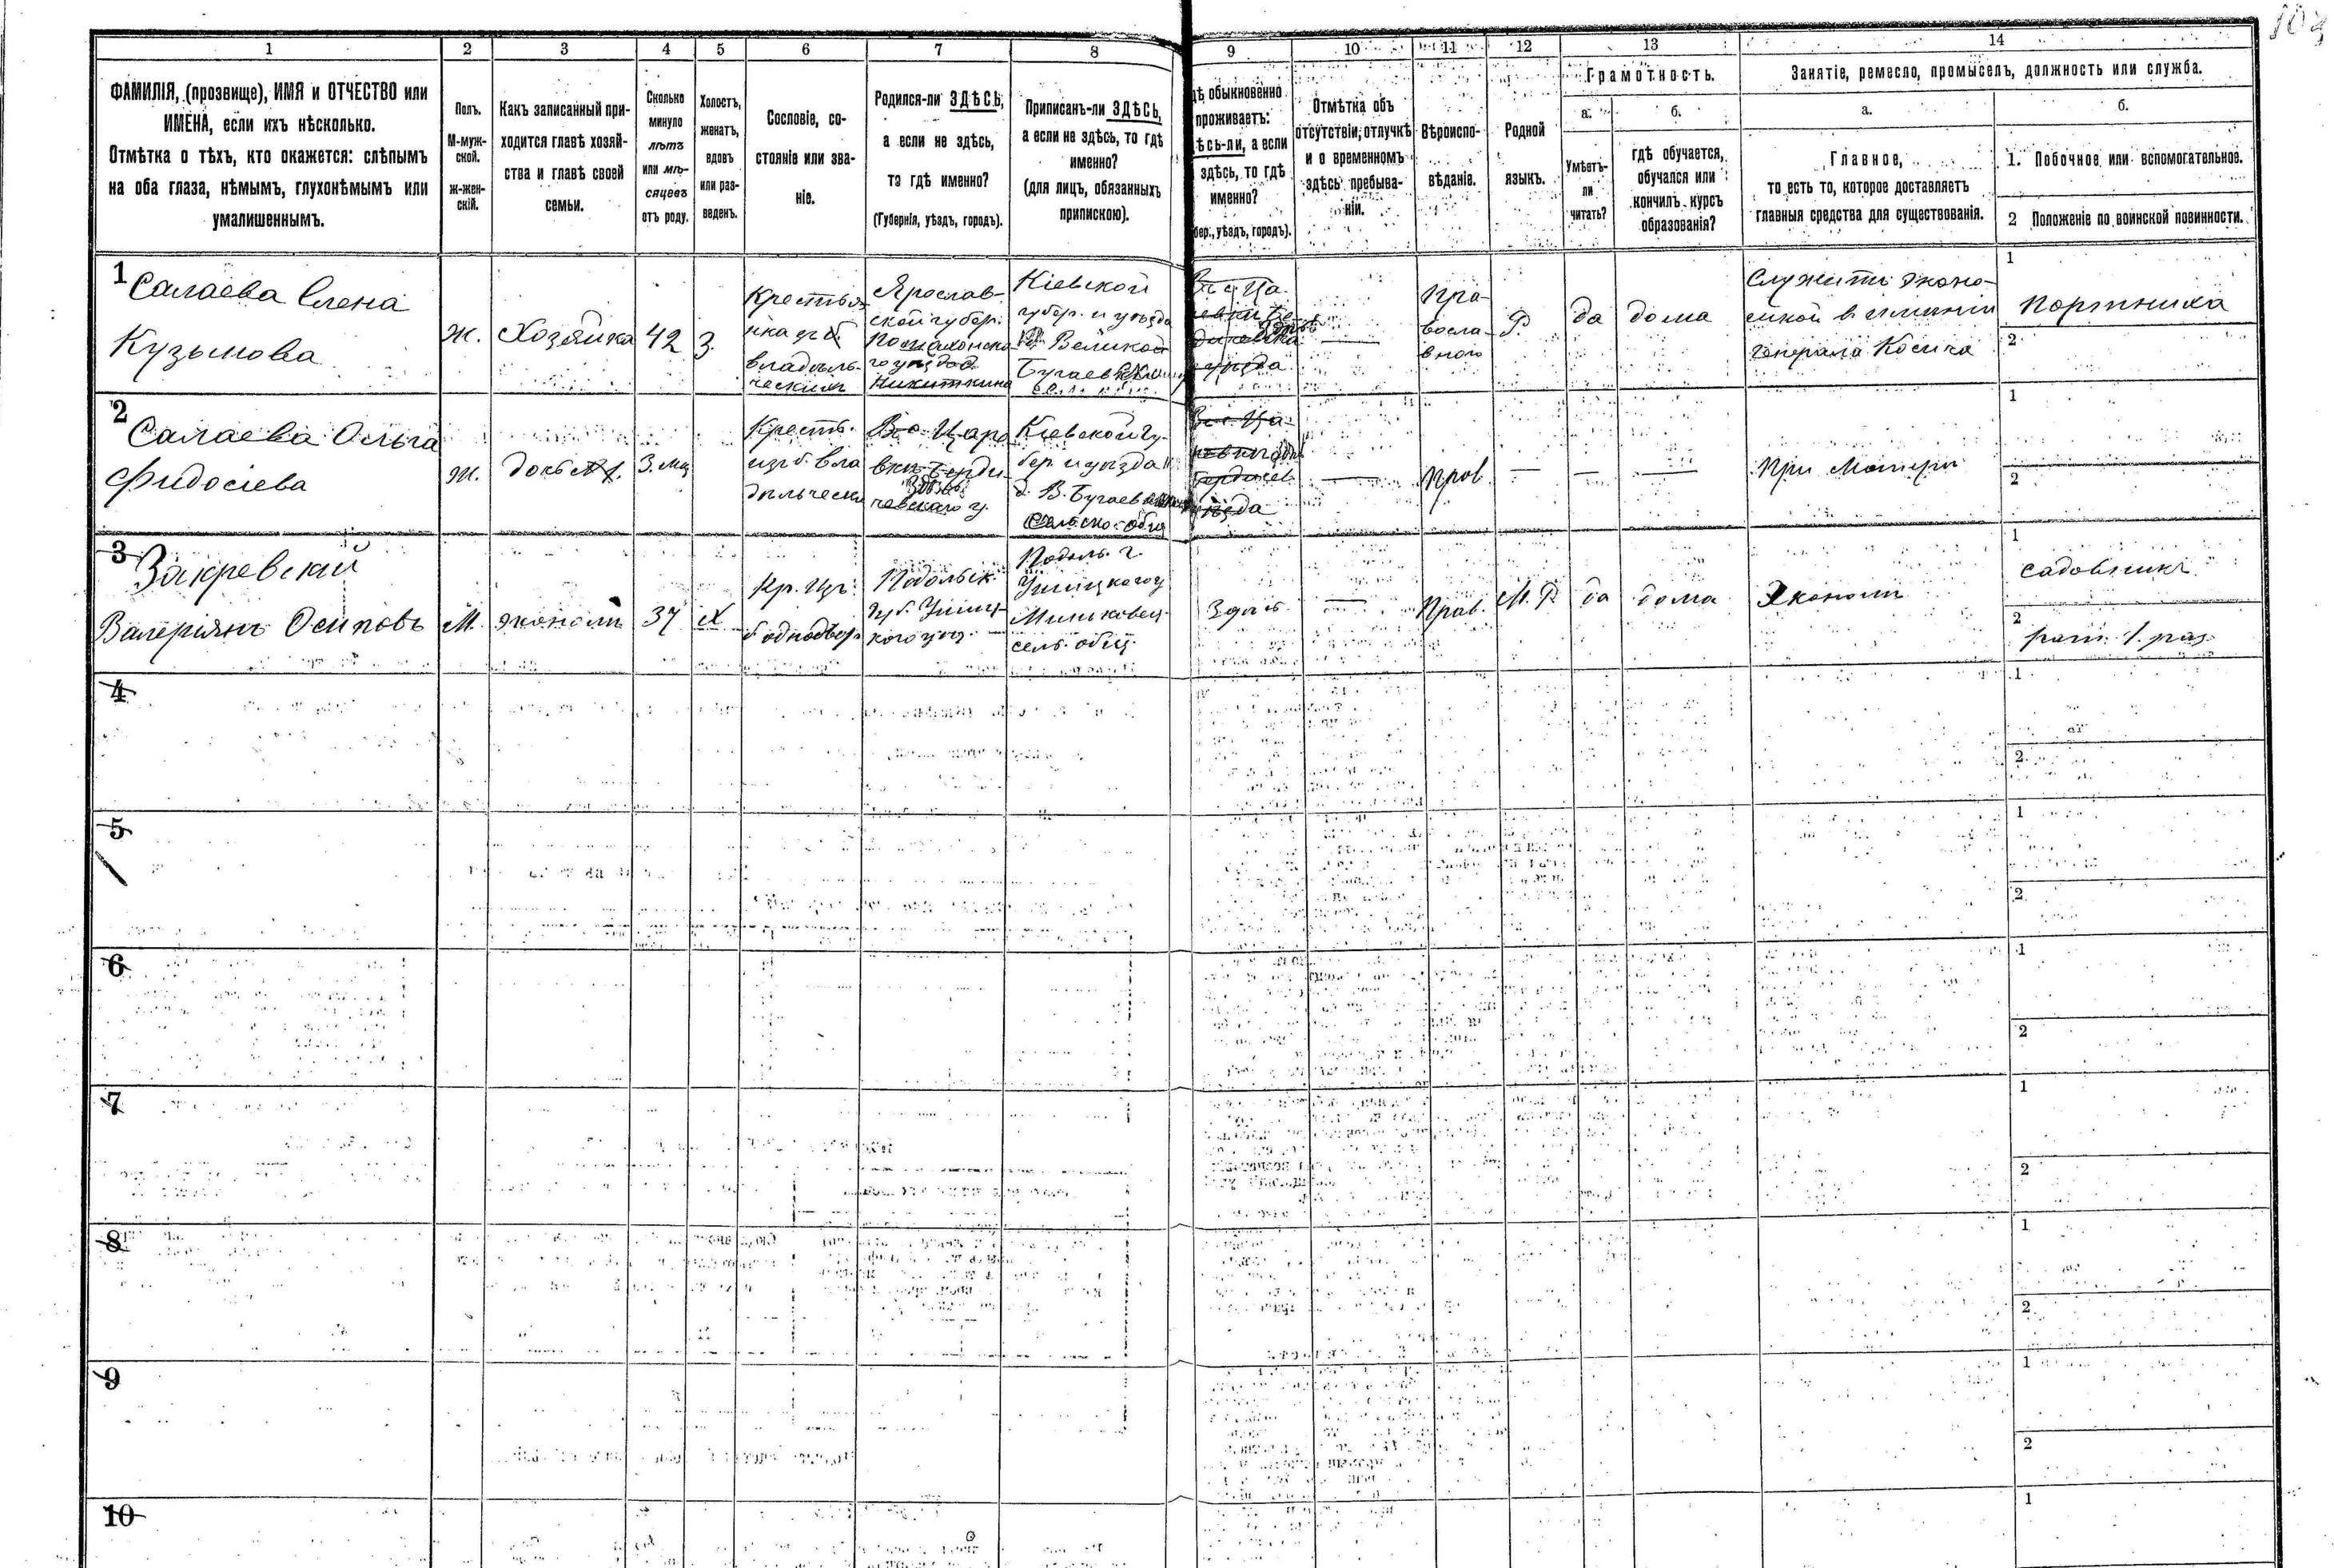 109
1 2 3 4 5 6 7 8 9 10 11 12 13 14
ФАМИЛІЯ, (прозвище), ИМЯ и ОТЧЕСТВО или
ИМЕНА, если ихъ нѣсколько.
Отмѣтка о тѣхъ, кто окажется: слѣпымъ
на оба глаза, нѣмымъ, глухонѣмымъ или
умалишеннымъ.
Полъ.
М-муж-
ской.
ж-жен-
скій.
Какъ записанный при-
ходится главѣ хозяй-
ства и главѣ своей
семьи.
Сколько
минуло
лѣтъ
или мѣ-
сяцевъ
отъ роду.
Холостъ,
женатъ,
вдовъ
или раз-
веденъ.
Сословіе, со-
стояніе или зва-
ніе.
Родился-ли ЗДѢСЬ,
а если не здѣсь,
то гдѣ именно?
(Губернія, уѣздъ, городъ).
Приписанъ-ли ЗДѢСЬ,
а если не здѣсь, то гдѣ
именно?
(для лицъ, обязанныхъ
припискою).
дѣ обыкновенно
проживаетъ:
ѣсь-ли, а если
здѣсь, то гдѣ
именно?
бер., уѣздъ, городъ).
Отмѣтка объ
отсутствіи, отлучкѣ
и о временномъ
здѣсь пребыва-
ніи.
Вѣроиспо-
вѣданіе.
Родной
языкъ.
Грамотность.
а.
Умѣетъ-
ли
читать?
б.
гдѣ обучается,
обучался или
кончилъ курсъ
образованія?
Занятіе, ремесло, промыселъ, должность или служба.
а.
Главное,
то есть то, которое доставляетъ
главныя средства для существованія.
б.
1. Побочное или вспомогательное.
2 Положеніе по воинской повинности.
1
Салаева Елена
Кузьмова
ж.
Хозяйка
42
З.
Крестья
нка изъ б.
владѣль-
ческихъ
Ярослав-
ской губер.
Никиткина
Кіевской
губер. и уѣзда
д. Великой
Здѣсь
Пра-
восла-
вного
Р
да
дома
Служитъ эконо-
мкой в имѣніи
генерала Косича
1
Портниха
2
2
Салаева Ольга
Фидосіева
ж.
дочь
3. мц
Кресть.
изъ б. вла
дѣльчески
Здѣсь
Кіевской гу-
бер. и уѣзда
д. В. Бугаевка
Сельско. общ
Прав.
—
—
—
При Матери
1
2
3
Закревскій
Валеріянъ Осиповъ
М.
экономъ
37
Х
Кр. изъ
б. однодвор.
Подольск.
губ. Ушиц-
кого уѣз.
Подоль. г.
Ушицкого у
Миньковец.
сель. общ.
Здѣсь
—
Прав.
М. Р.
да
дома
Экономъ
1
садовникъ
2
рат. 1. раз.
4
1
2
5
1
2
6
1
2
7
1
2
8
1
2
9
1
2
10
1